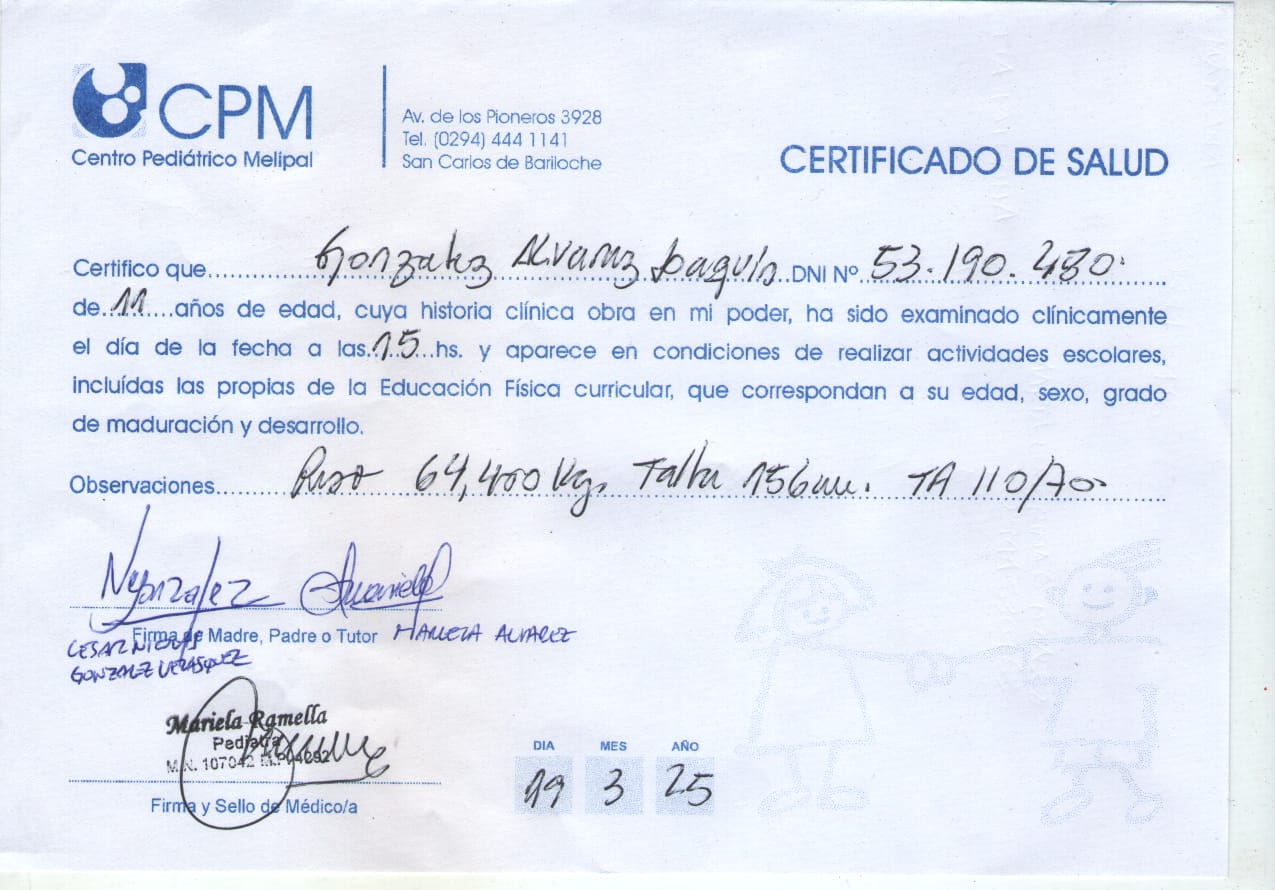 CPM
Centro Pediátrico Melipal
Av. de los Pioneros 3928
Tel. (0294) 444 1141
San Carlos de Bariloche
CERTIFICADO DE SALUD
Certifico que Gonzalez Alvarez Joaquín DNI Nº 53.190.480
de 11 años de edad, cuya historia clínica obra en mi poder, ha sido examinado clínicamente
el día de la fecha a las 15 hs. y aparece en condiciones de realizar actividades escolares,
incluídas las propias de la Educación Física curricular, que correspondan a su edad, sexo, grado
de maduración y desarrollo.
Observaciones Peso 64,400 Kg. Talla 156 cm. TA 110/70
NGonzalez
Firma de Madre, Padre o Tutor MARIELA ALVAREZ
CESAR NICOLAS
GONZALEZ VELASQUEZ
Mariela Ramella
Pediatra
M.N. 107042
Firma y Sello de Médico/a
DIA MES AÑO
19 3 25